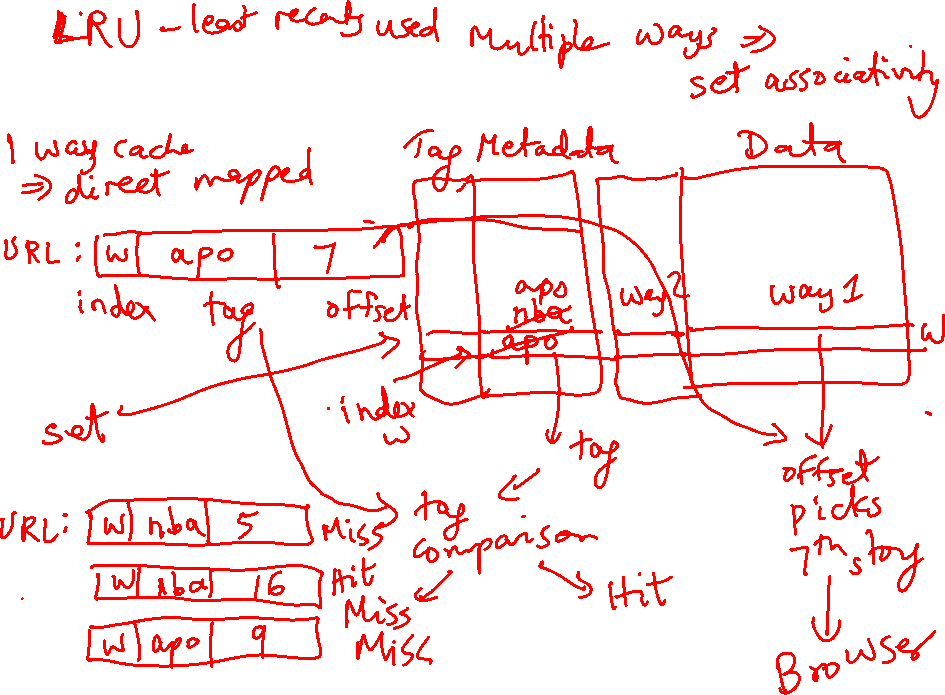 LRU - least recently used
Multiple ways ⇒
set associativity
1 way cache
⇒ direct mapped
Tag Metadata
Data
URL: w apo 7
index tag offset
apo
nba
apo
way 2
way 1
w
set
index
w
tag
offset
picks
7th story
Browser
tag
comparison
Hit
Miss
URL: w nba 5 Miss
w nba 6 Hit
w apo 9 Miss